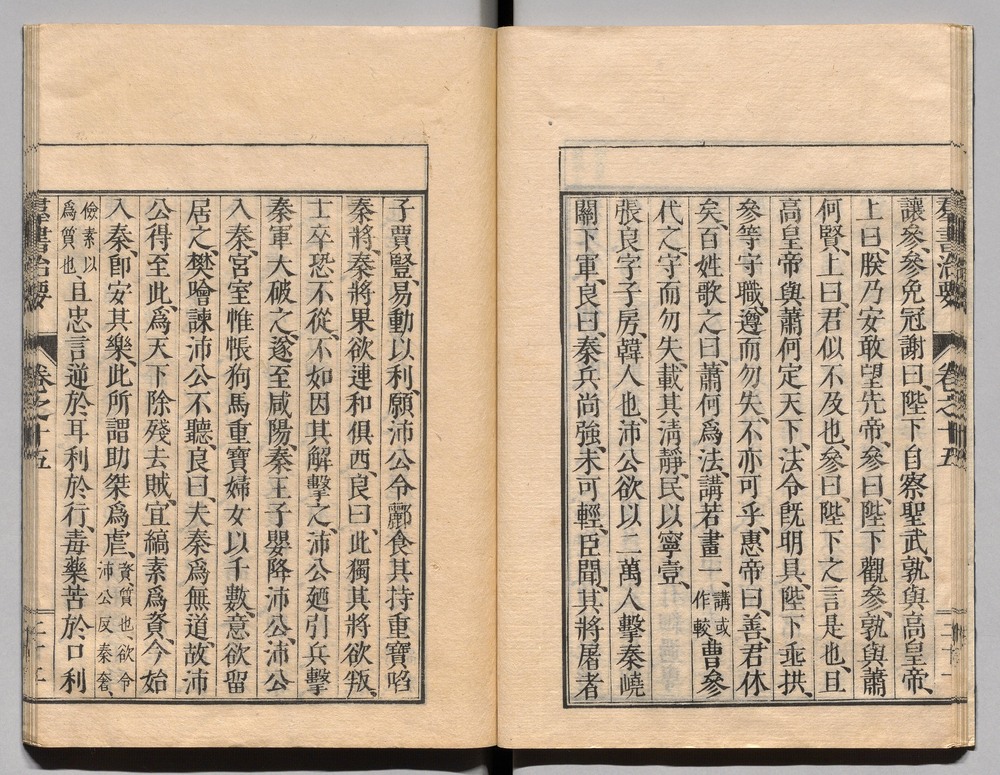 羣書治要 卷之十五
讓參、參免冠謝曰、陛下自察聖武、孰與高皇帝、
上曰、朕乃安敢望先帝、參曰、陛下觀參、孰與蕭
何賢、上曰、君似不及也、參曰、陛下之言是也、且
高皇帝與蕭何定天下、法令既明具、陛下垂拱、
參等守職、遵而勿失、不亦可乎、惠帝曰、善、君休
矣、百姓歌之曰、蕭何爲法、講若畫一、講或作較曹參
代之、守而勿失、載其淸靜、民以寧壹、
張良、字子房、韓人也、沛公欲以二萬人擊秦嶢
關下軍、良曰、秦兵尚強、未可輕、臣聞、其將屠者
子賈豎、易動以利、願沛公令酈食其持重寶啗
秦將、秦將果欲連和俱西、良曰、此獨其將欲叛、
士卒恐不從、不如因其解擊之、沛公廼引兵擊
秦軍大破之、遂至咸陽、秦王子嬰降沛公、沛公
入秦、宮室惟帳狗馬重寶婦女以千數、意欲留
居之、樊噲諫、沛公不聽、良曰、夫秦爲無道、故沛
公得至此、爲天下除殘去賊、宜縞素爲資、今始
入秦、卽安其樂、此所謂助桀爲虐、資、質也、欲令沛公反秦奢、
儉素以爲質也、且忠言逆於耳利於行、毒藥苦於口利
羣書治要 卷之十五 二十二